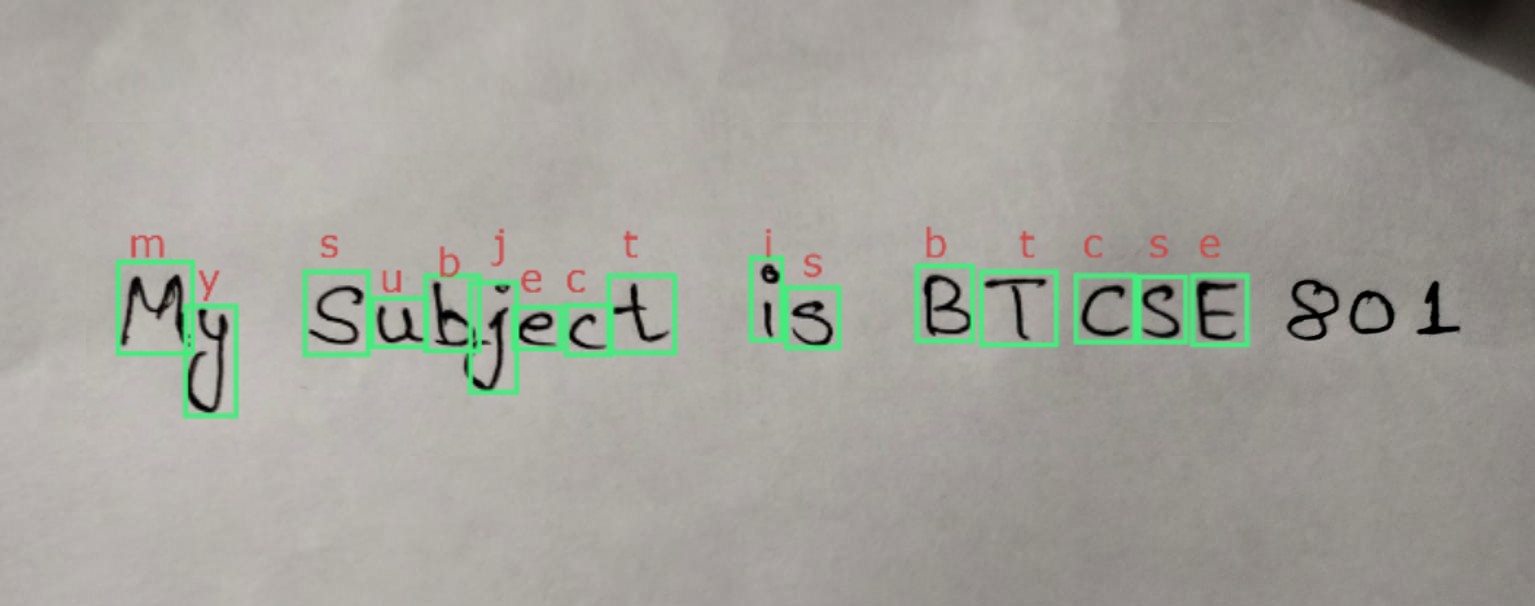 m y s u b j e c t i s b t c s e
My Subject is BTCSE 801